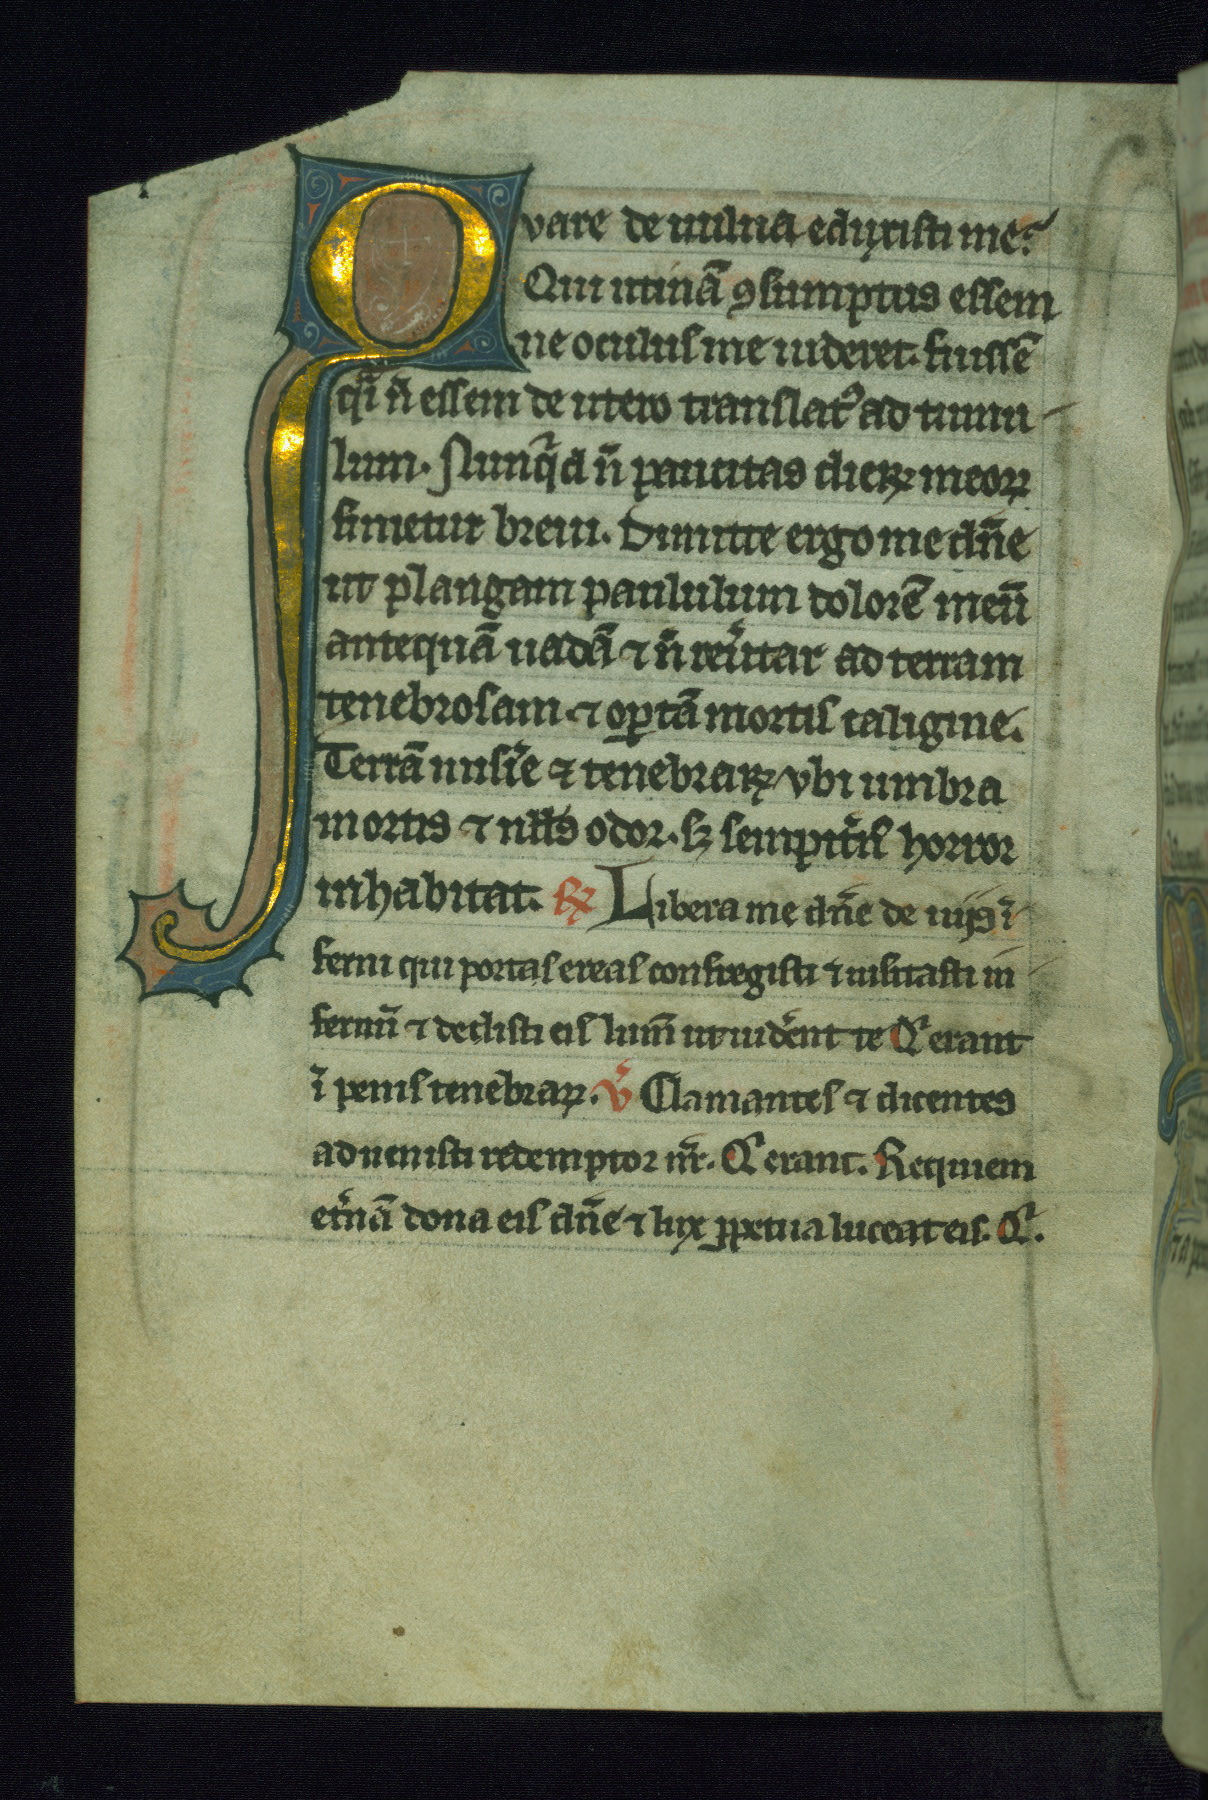 Quare de uulua eduxisti me?
Qui utinā ꝯsumptus essem
ne oculus me uideret. fuissē
q̄i n̄ essem de utero translatꝰ ad tumu
lum. Nunq̇d n̄ paucitas dieꝝ meoꝝ
finietur breui. Dimitte ergo me dn̄e
ut plangam paululum dolorē meū
antequā uadā ⁊ n̄ reu̾tar ad terram
tenebrosam ⁊ oꝑtā mortis caligine.
Terrā miſie ⁊ tenebraꝝ vbi umbra
mortis ⁊ nll̄s odor. sꝫ sempit̾nꝰ horror
inhabitat. ℟ Libera me dn̄e de uijs ī
ferni qui portas ereas confregisti ⁊ uisitasti in
fernū ⁊ dedisti eis lum̄ ut uid̾ent te Q̾ erant
ī penis tenebraꝝ. ℣ Clamantes ⁊ dicentes
aduenisti redemptor nr̄. Q̾ erant. Requiem
et̾nā dona eis dn̄e ⁊ lux ꝑpetua luceat eis. Q̾.